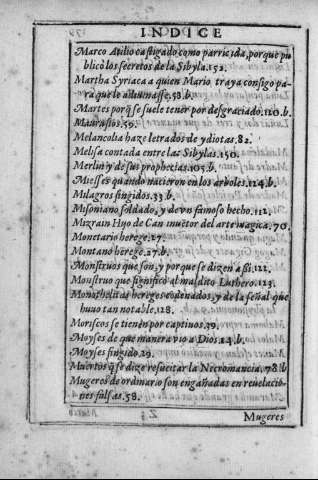 INDICE
Marco Atilio castigado como parricida, porque pu
blicò los secretos de la Sibyla. 152.
Martha Syriaca a quien Mario traya consigo pa-
ra que le adiuinasse. 58. b.
Martes porq̃ se suele tener por desgraciado. 120. b.
Maurusios. 59.
Melancolia haze letrados de ydiotas. 82.
Melisa contada entre las Sibylas. 150.
Merlin y de sus prophecias. 105. b.
Miesses quando nacieron en los arboles. 124. b.
Milagros fingidos. 33. b.
Misoniano soldado, y de vn famoso hecho. 112.
Mizrain Hijo de Can inuẽtor del arte magica. 70.
Monetario herege. 27.
Montano herege. 27. b.
Monstruos que son, y porque se dizen assi. 122.
Monstruo que significò al maldito Luthero. 123.
Monothelitas hereges condenados, y de la señal que
huuo tan notable. 128.
Moriscos se tienen por captiuos. 39.
Moyses de que manera vio a Dios. 14. b.
Moyses fingido. 29.
Muertos q̃ se dize resucitar la Necromancia. 78. b
Mugeres de ordinario son engañadas en reuelacio-
nes falsas. 58.
Mugeres